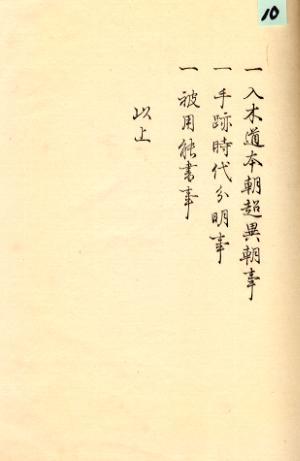 10
一入木道本朝超異朝事
一手跡時代分明事
一被用能書事
以上